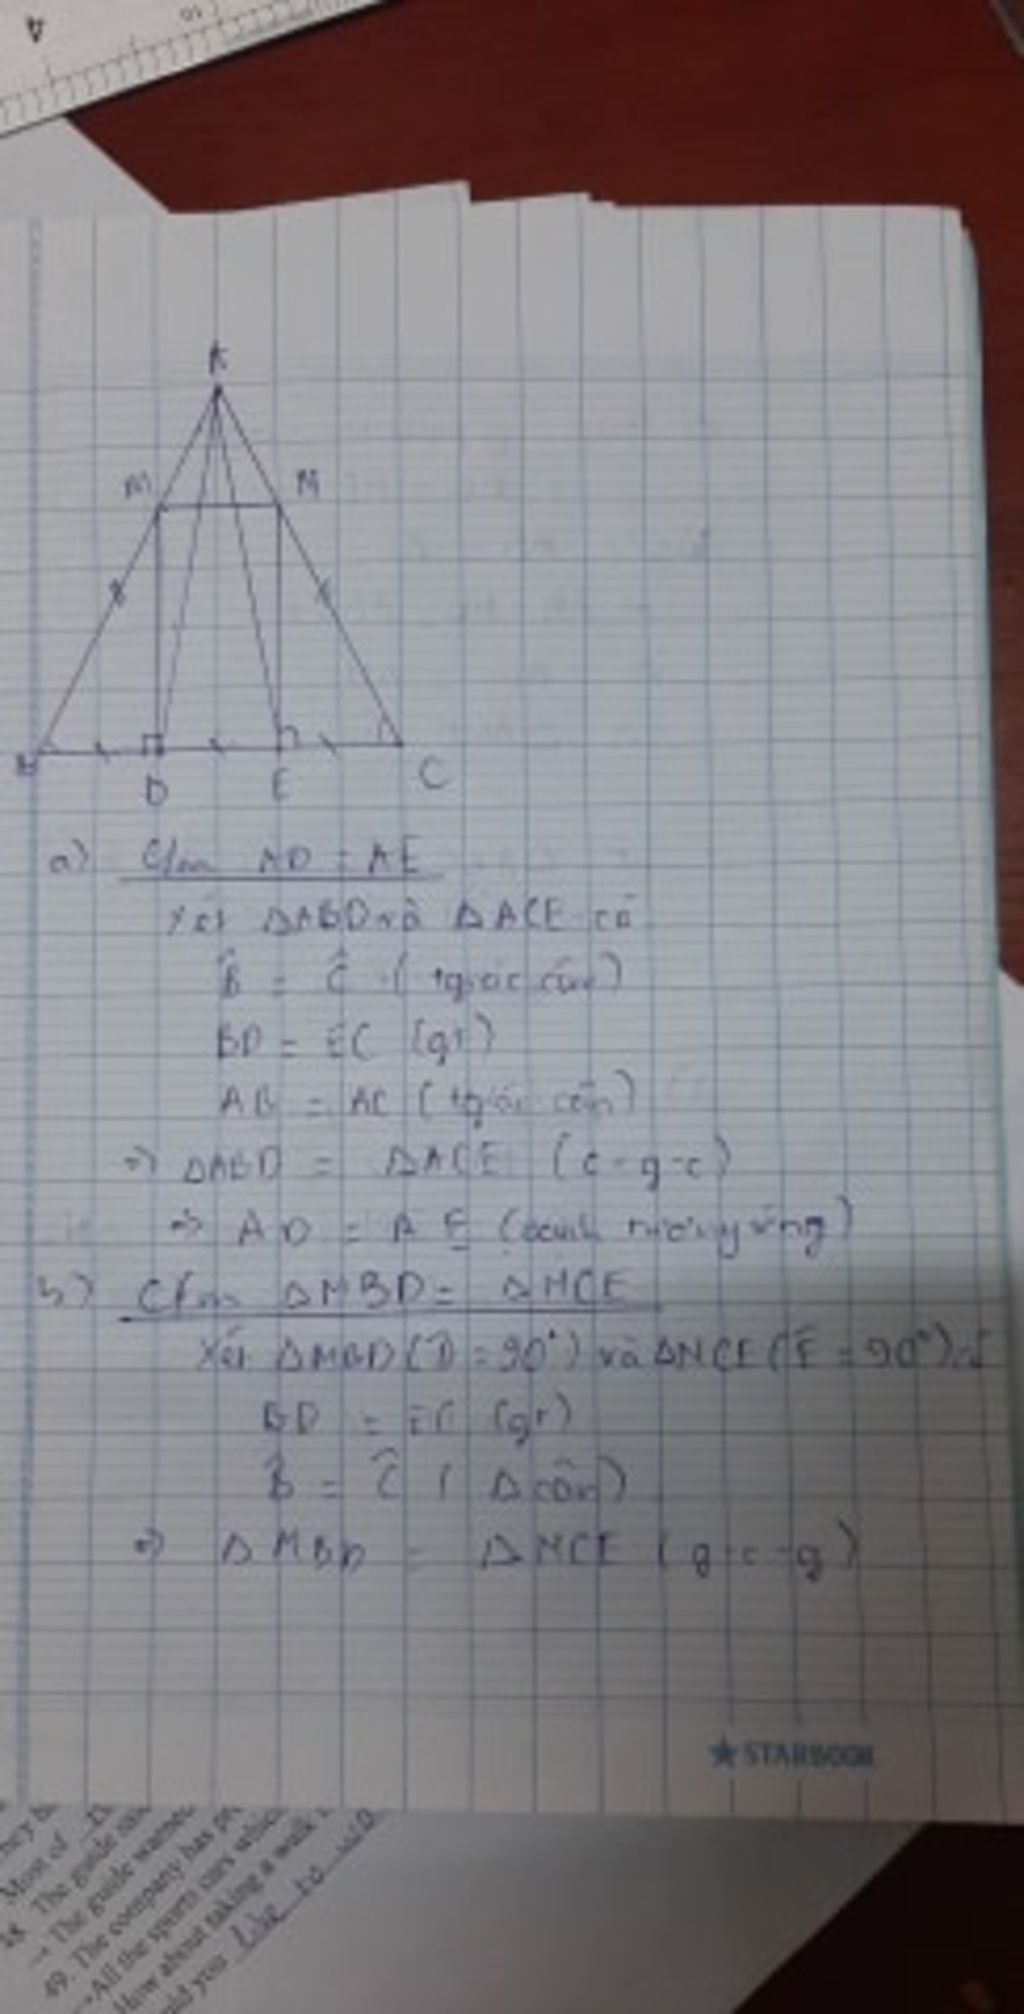 4
A
M
N
B
D
E
C
a) C/m AD = AE
Xét ΔABD và ΔACE có
B̂ = Ĉ (tgiác cân)
BD = EC (gt)
AB = AC (tgiác cân)
=> ΔABD = ΔACE (c-g-c)
=> AD = AE (cạnh tương ứng)
b) C/m ΔMBD = ΔNCE
Xét ΔMBD (D̂ = 90°) và ΔNCE (Ê = 90°) có
BD = EC (gt)
B̂ = Ĉ (Δ cân)
=> ΔMBD = ΔNCE (g-c-g)
STARBOOK
Most of
The guide
→ The guide wante
49. The company has pr
All the sports cars whic
How about taking a walk
you like to